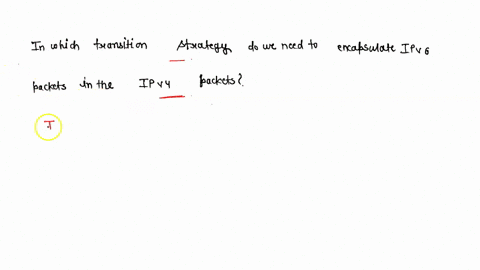 In which transition strategy do we need to encapsulate IPv6
packets in the IPv4 packets?
T